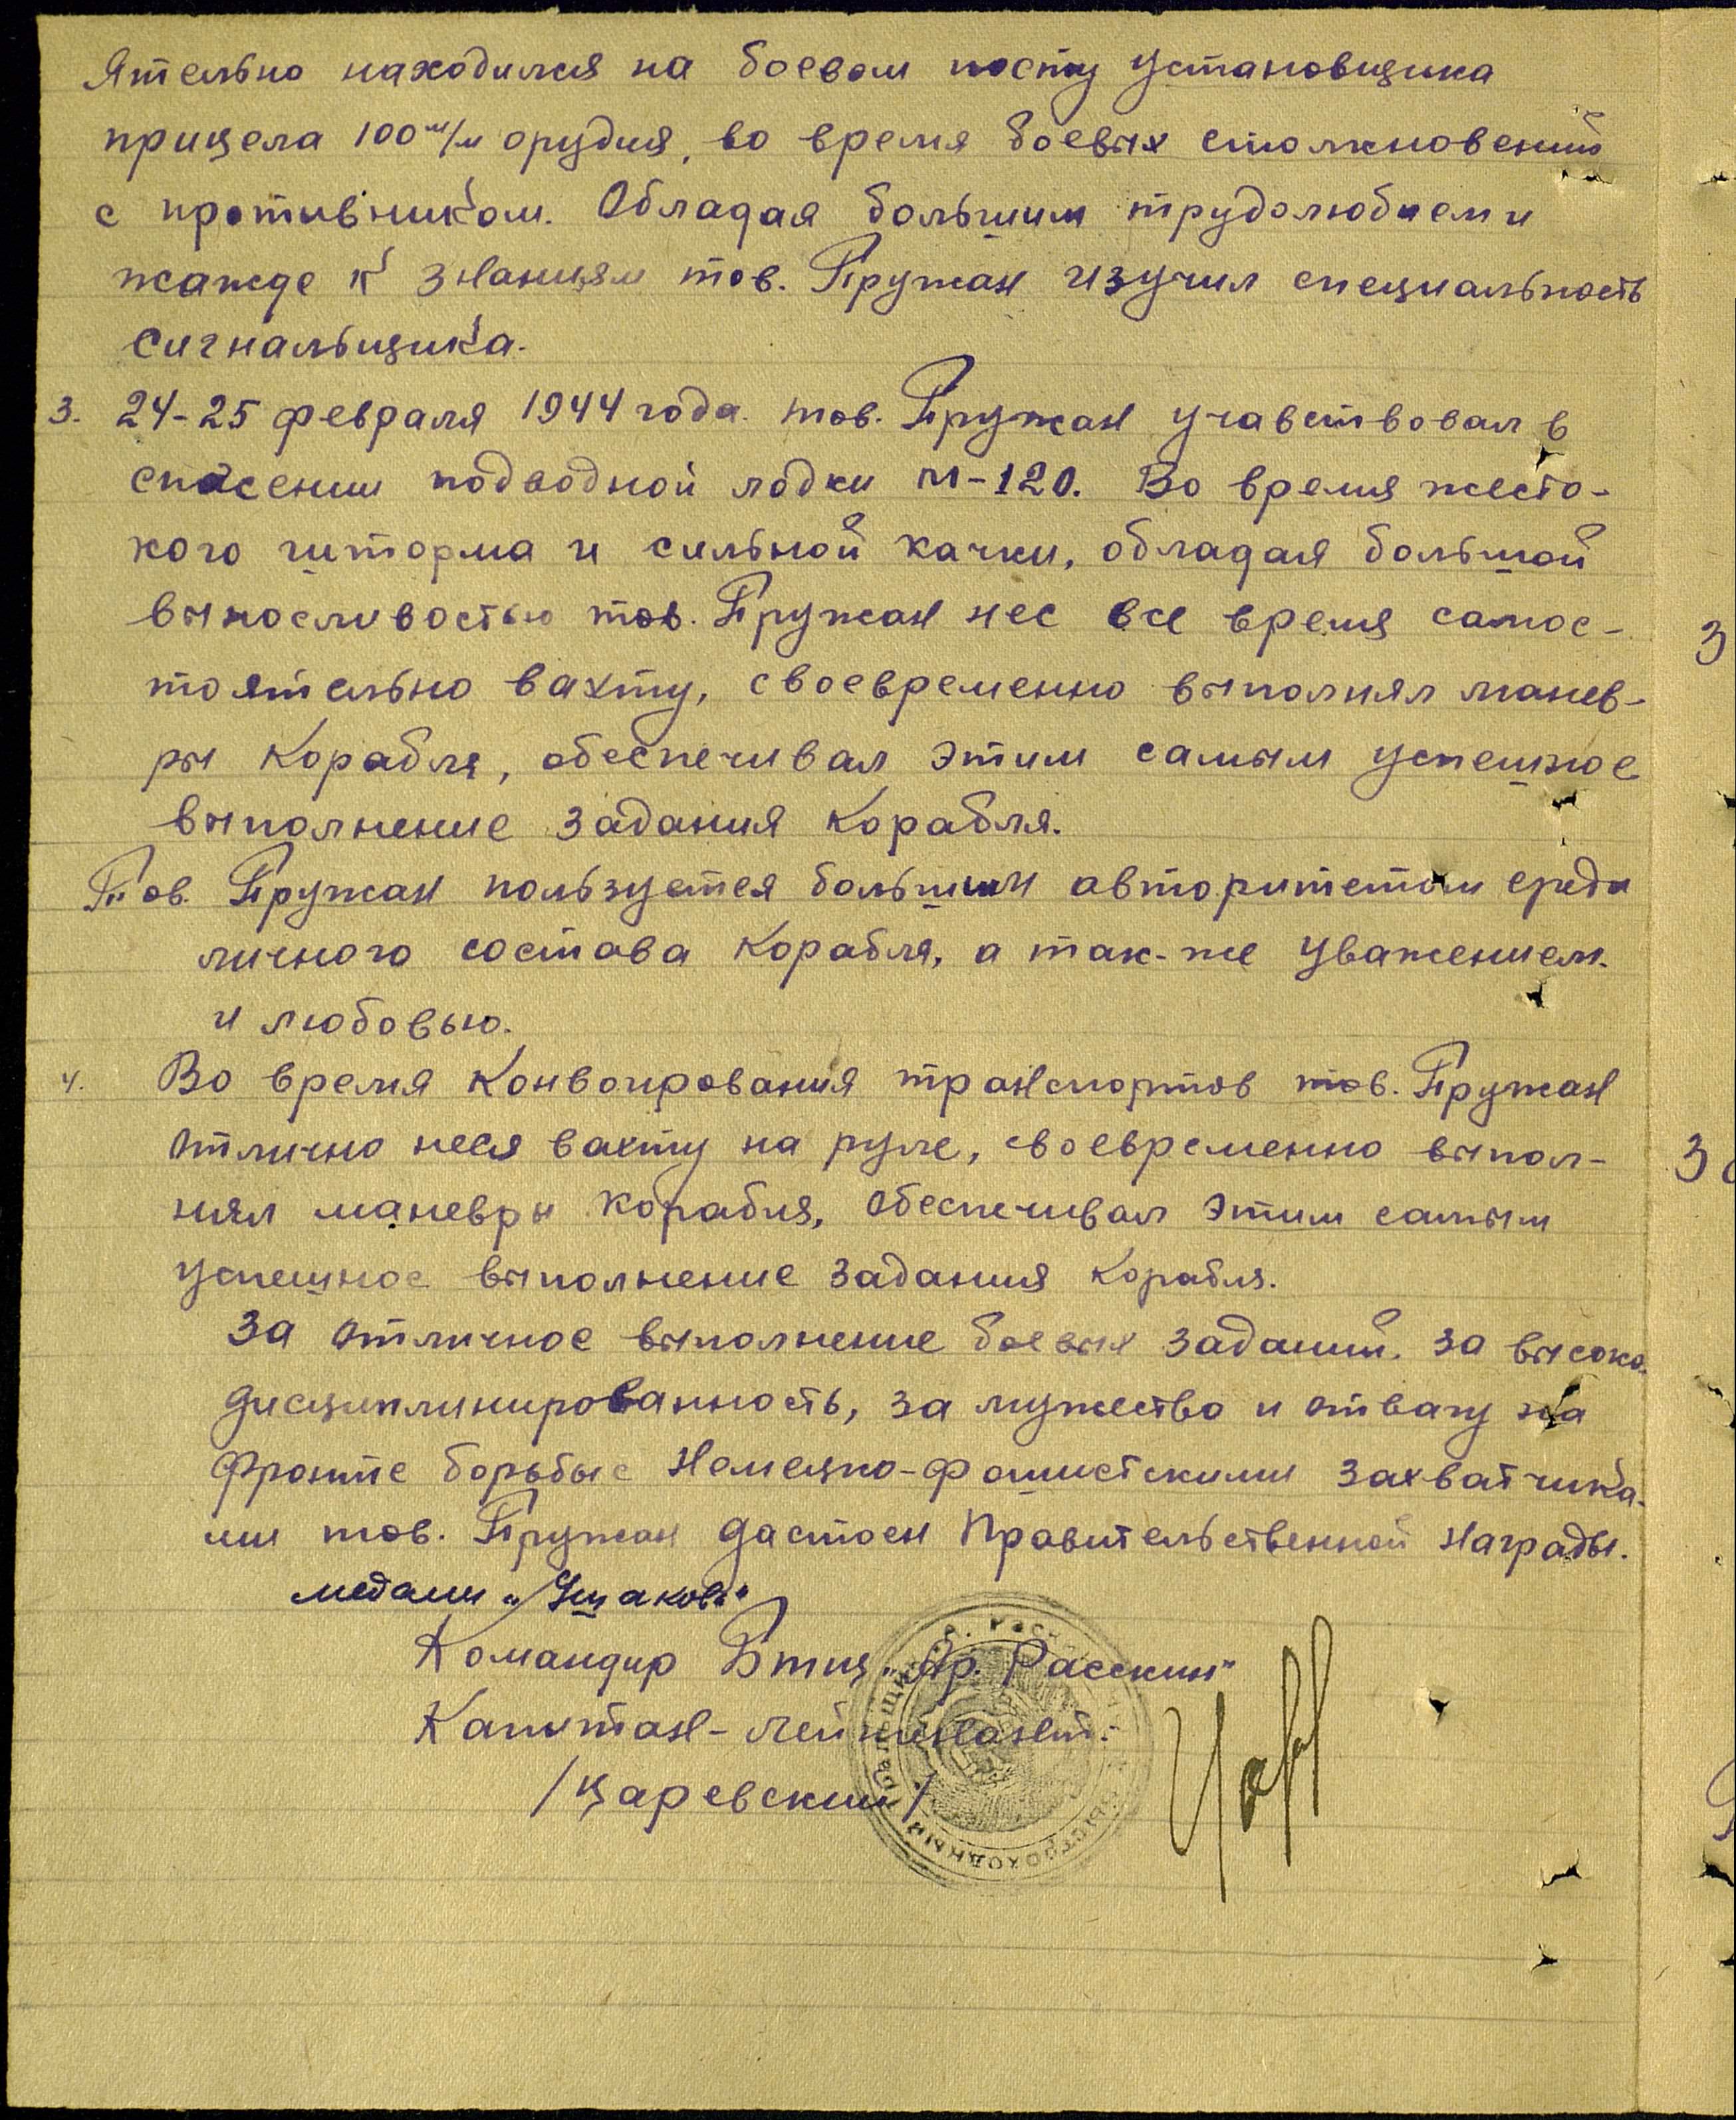 ятельно находился на боевом посту установщика
прицела 100 м/м орудия, во время боевых столкновений
с противником. Обладая большим трудолюбием и
жажде к знаниям тов. Пружан изучил специальность
сигнальщика.
3. 24-25 февраля 1944 года тов. Пружан учавствовал в
спасении подводной лодки М-120. Во время жесто-
кого шторма и сильной качки, обладая большой
выносливостью тов. Пружан нес все время самос-
тоятельно вахту, своевременно выполнял манев-
ры корабля, обеспечивал этим самым успешное
выполнение задания корабля.
Тов. Пружан пользуется большим авторитетом среди
личного состава корабля, а так-же уважением
и любовью.
4. Во время конвоирования транспортов тов. Пружан
отлично неся вахту на руле, своевременно выпол-
нял маневры корабля, обеспечивал этим самым
успешное выполнение задания корабля.
За отличное выполнение боевых заданий. за высоко.
дисциплинированность, за мужество и отвагу на
фронте борьбы с немецко-фашистскими захватчика-
ми тов. Пружан достоен Правительственной награды.
медали "Ушакова"
Командир Бтщ "Ар. Расскин"
Капитан-лейтенант:
/Царевский/
БЫСТРОХОДНЫЙ